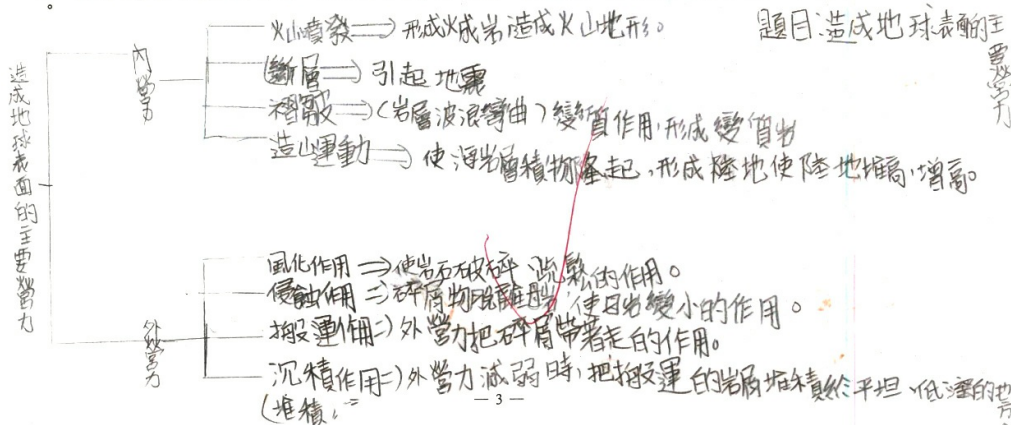 。
題目:造成地球表面的主要營力
造成地球表面的主要營力
內營力
火山噴發⇒形成火成岩,造成火山地形。
斷層⇒引起地震
褶皺⇒(岩層波浪彎曲)變質作用,形成變質岩
造山運動⇒使海岩層積物隆起,形成陸地使陸地堆高、增高。
外營力
風化作用⇒使岩石破碎、疏鬆的作用。
侵蝕作用⇒碎屑物脫離岩,使岩變小的作用。
搬運作用⇒外營力把碎屑帶著走的作用。
沉積作用⇒外營力減弱時,把搬運的岩屑堆積於平坦、低窪的地方
(堆積
— 3 —